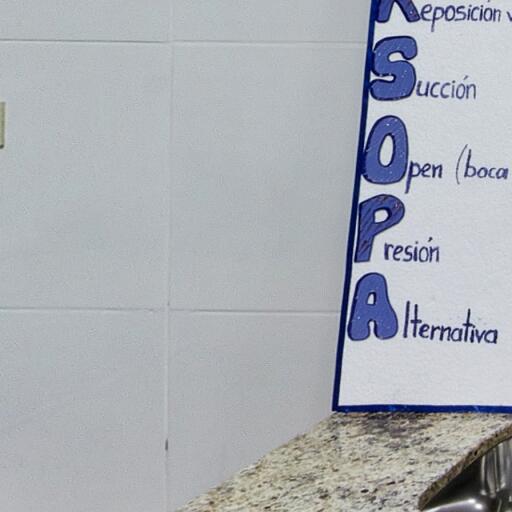 Reposición
Succión
Open (boca
Presión
Alternativa